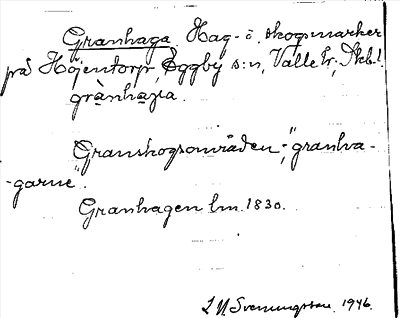 Granhaga Hag- o. skogsmarker
på Höjentorp, Eggby s:n, Valle hr, Skbl.
grànhaga.
"Granskogsområden", "granha-
-garne".
Granhagen lm. 1830.
Svenungsson. 1946.